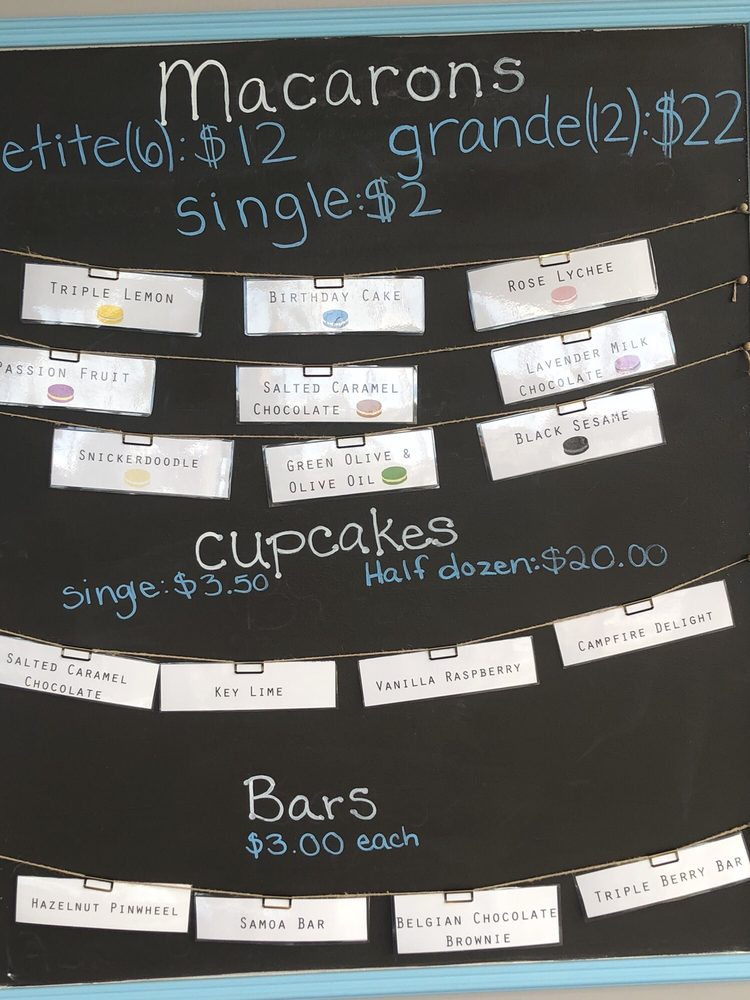 Macarons
etite(6):$12 grande(12):$22
single:$2
TRIPLE LEMON
BIRTHDAY CAKE
ROSE LYCHEE
PASSION FRUIT
SALTED CARAMEL
CHOCOLATE
LAVENDER MILK
CHOCOLATE
SNICKERDOODLE
GREEN OLIVE &
OLIVE OIL
BLACK SESAME
cupcakes
single:$3.50 Half dozen:$20.00
SALTED CARAMEL
CHOCOLATE
KEY LIME
VANILLA RASPBERRY
CAMPFIRE DELIGHT
Bars
$3.00 each
HAZELNUT PINWHEEL
SAMOA BAR
BELGIAN CHOCOLATE
BROWNIE
TRIPLE BERRY BAR